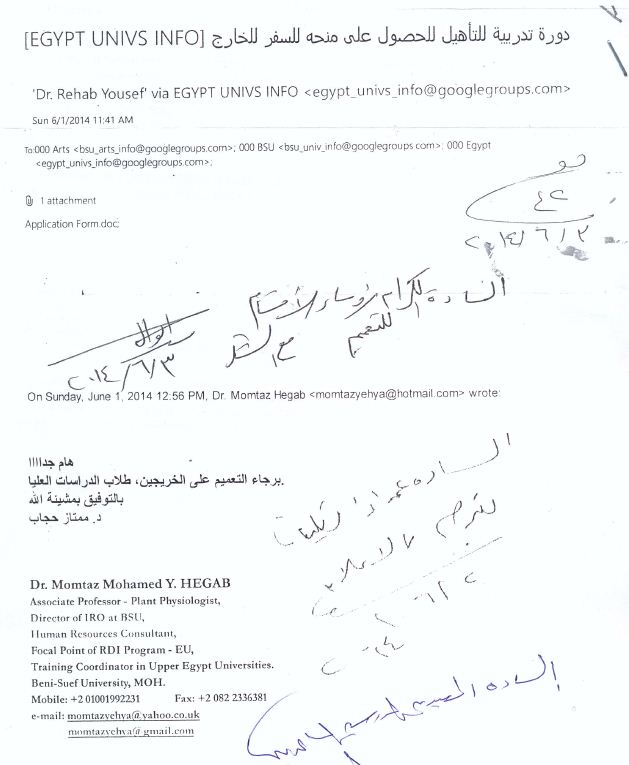 [EGYPT UNIVS INFO] دورة تدريبية للتأهيل للحصول على منحه للسفر للخارج
'Dr. Rehab Yousef' via EGYPT UNIVS INFO <egypt_univs_info@googlegroups.com>
Sun 6/1/2014 11:41 AM
To:000 Arts <bsu_arts_info@googlegroups.com>; 000 BSU <bsu_univ_info@googlegroups.com>; 000 Egypt
<egypt_univs_info@googlegroups.com>;
1 attachment
Application Form.doc;
٤٢
٢٠١٤/٦/٢
السادة الكرام رؤساء الأقسام
للتعميم مع الشكر
٢٠١٤/٦/٣
On Sunday, June 1, 2014 12:56 PM, Dr. Momtaz Hegab <momtazyehya@hotmail.com> wrote:
هام جداااا
برجاء التعميم على الخريجين، طلاب الدراسات العليا.
بالتوفيق بمشينة الله
د. ممتاز حجاب
السادة عمداء الكليات
Dr. Momtaz Mohamed Y. HEGAB
Associate Professor - Plant Physiologist,
Director of IRO at BSU,
Human Resources Consultant,
Focal Point of RDI Program - EU,
Training Coordinator in Upper Egypt Universities.
Beni-Suef University, MOH.
Mobile: +2 01001992231 Fax: +2 082 2336381
e-mail: momtazyehya@yahoo.co.uk
momtazyehya@gmail.com
السادة